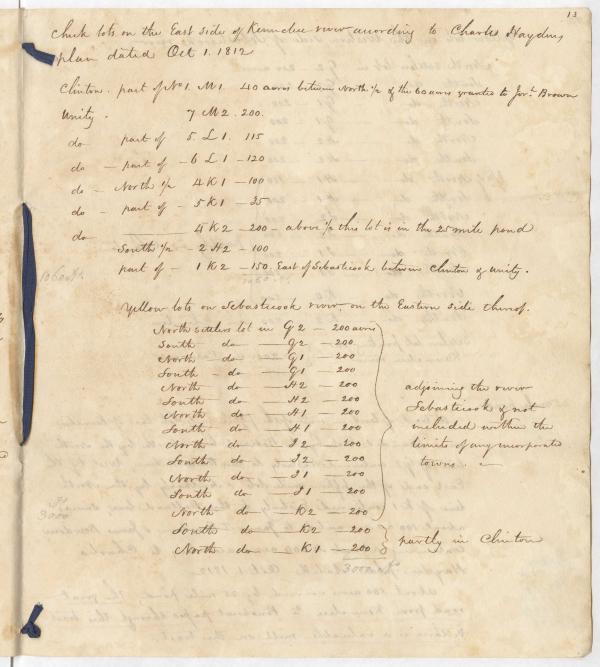 13
Check lots on the East side of Kennebec river according to Charles Haydens
plan dated Oct 1. 1812
Clinton. part of No 1. M1. 40 acres between North 1/2 of the 60 acres granted to Jona. Brown
Unity. 7 M2. 200.
do part of 5 L1. 115
do - part of - 6 L1 - 120
do - North 1/2 4 K1 - 100
do - part of - 5 K1 - 35
do 4 K2 - 200 - above 1/2 this lot is in the 25 mile pond
South 1/2 - 2 H2 - 100
part of - 1 K2 - 150. East of Sebasticook between Clinton & Unity.
1060
Yellow lots on Sebasticook river, on the Eastern side thereof.
North settlers lot in G2 - 200 acres
South do - G2 - 200
North do - G1 - 200
South - do - G1 - 200
North do - H2 - 200
South do - H2 - 200
North do - H1 - 200
South do - H1 - 200
North do - I2 - 200
South do - I2 - 200
North do - I1 - 200
South do - I1 - 200
North do - K2 - 200
adjoining the river
Sebasticook & not
included within the
limits of any incorporated
towns. -
South do - K2 - 200
North do - K1 - 200
partly in Clinton
3000
3000